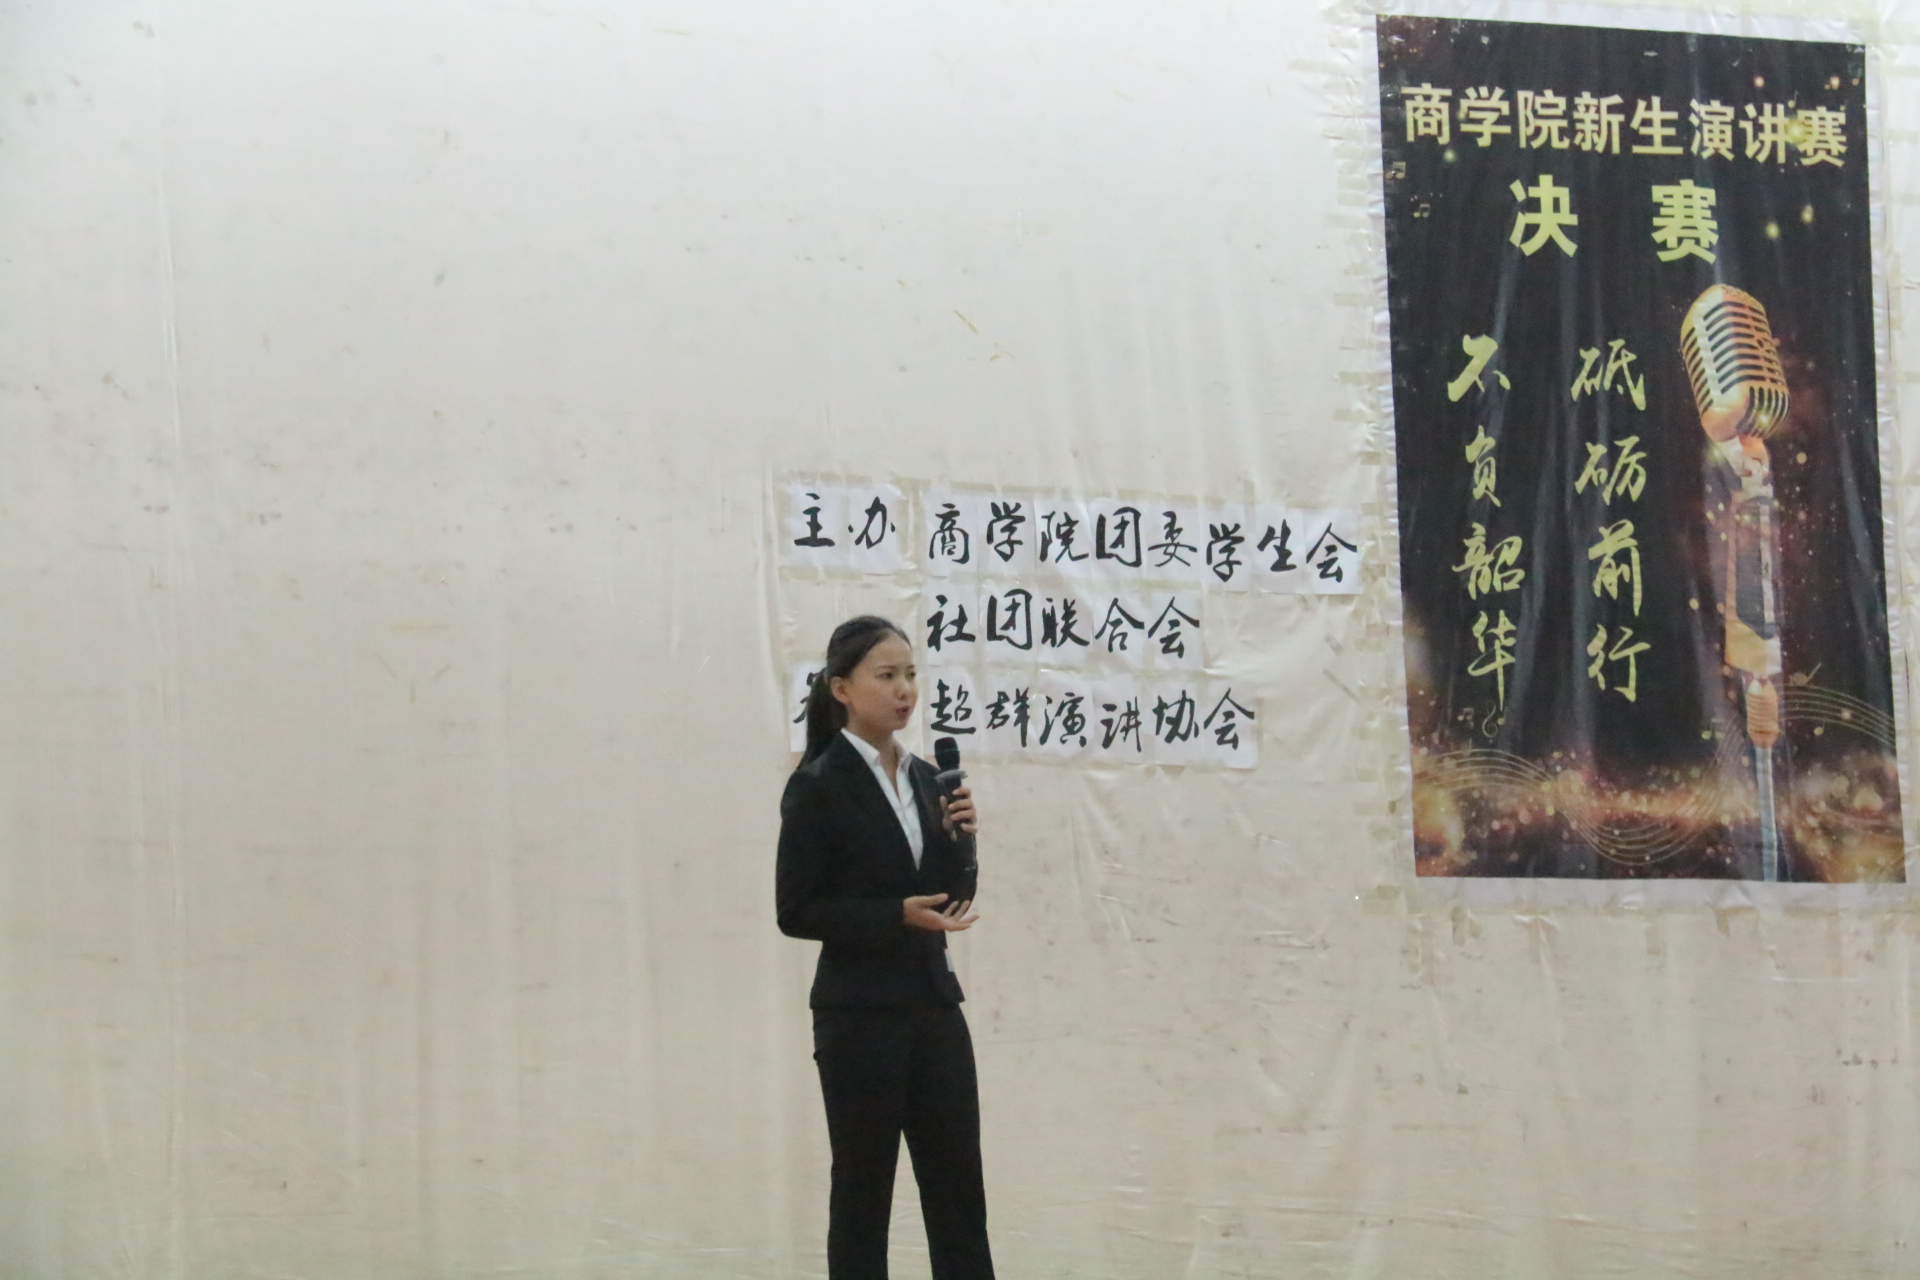 商学院新生演讲赛
决 赛
砥砺前行
不负韶华
主办 商学院团委学生会
社团联合会
超群演讲协会